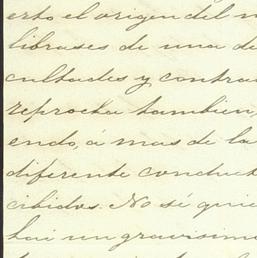 erto el origen del m
librases de una de
cultades y contra
reprocha tambien,
endo, á mas de la
diferente conduct
cibidos. No sé quie
hai un gravisimo